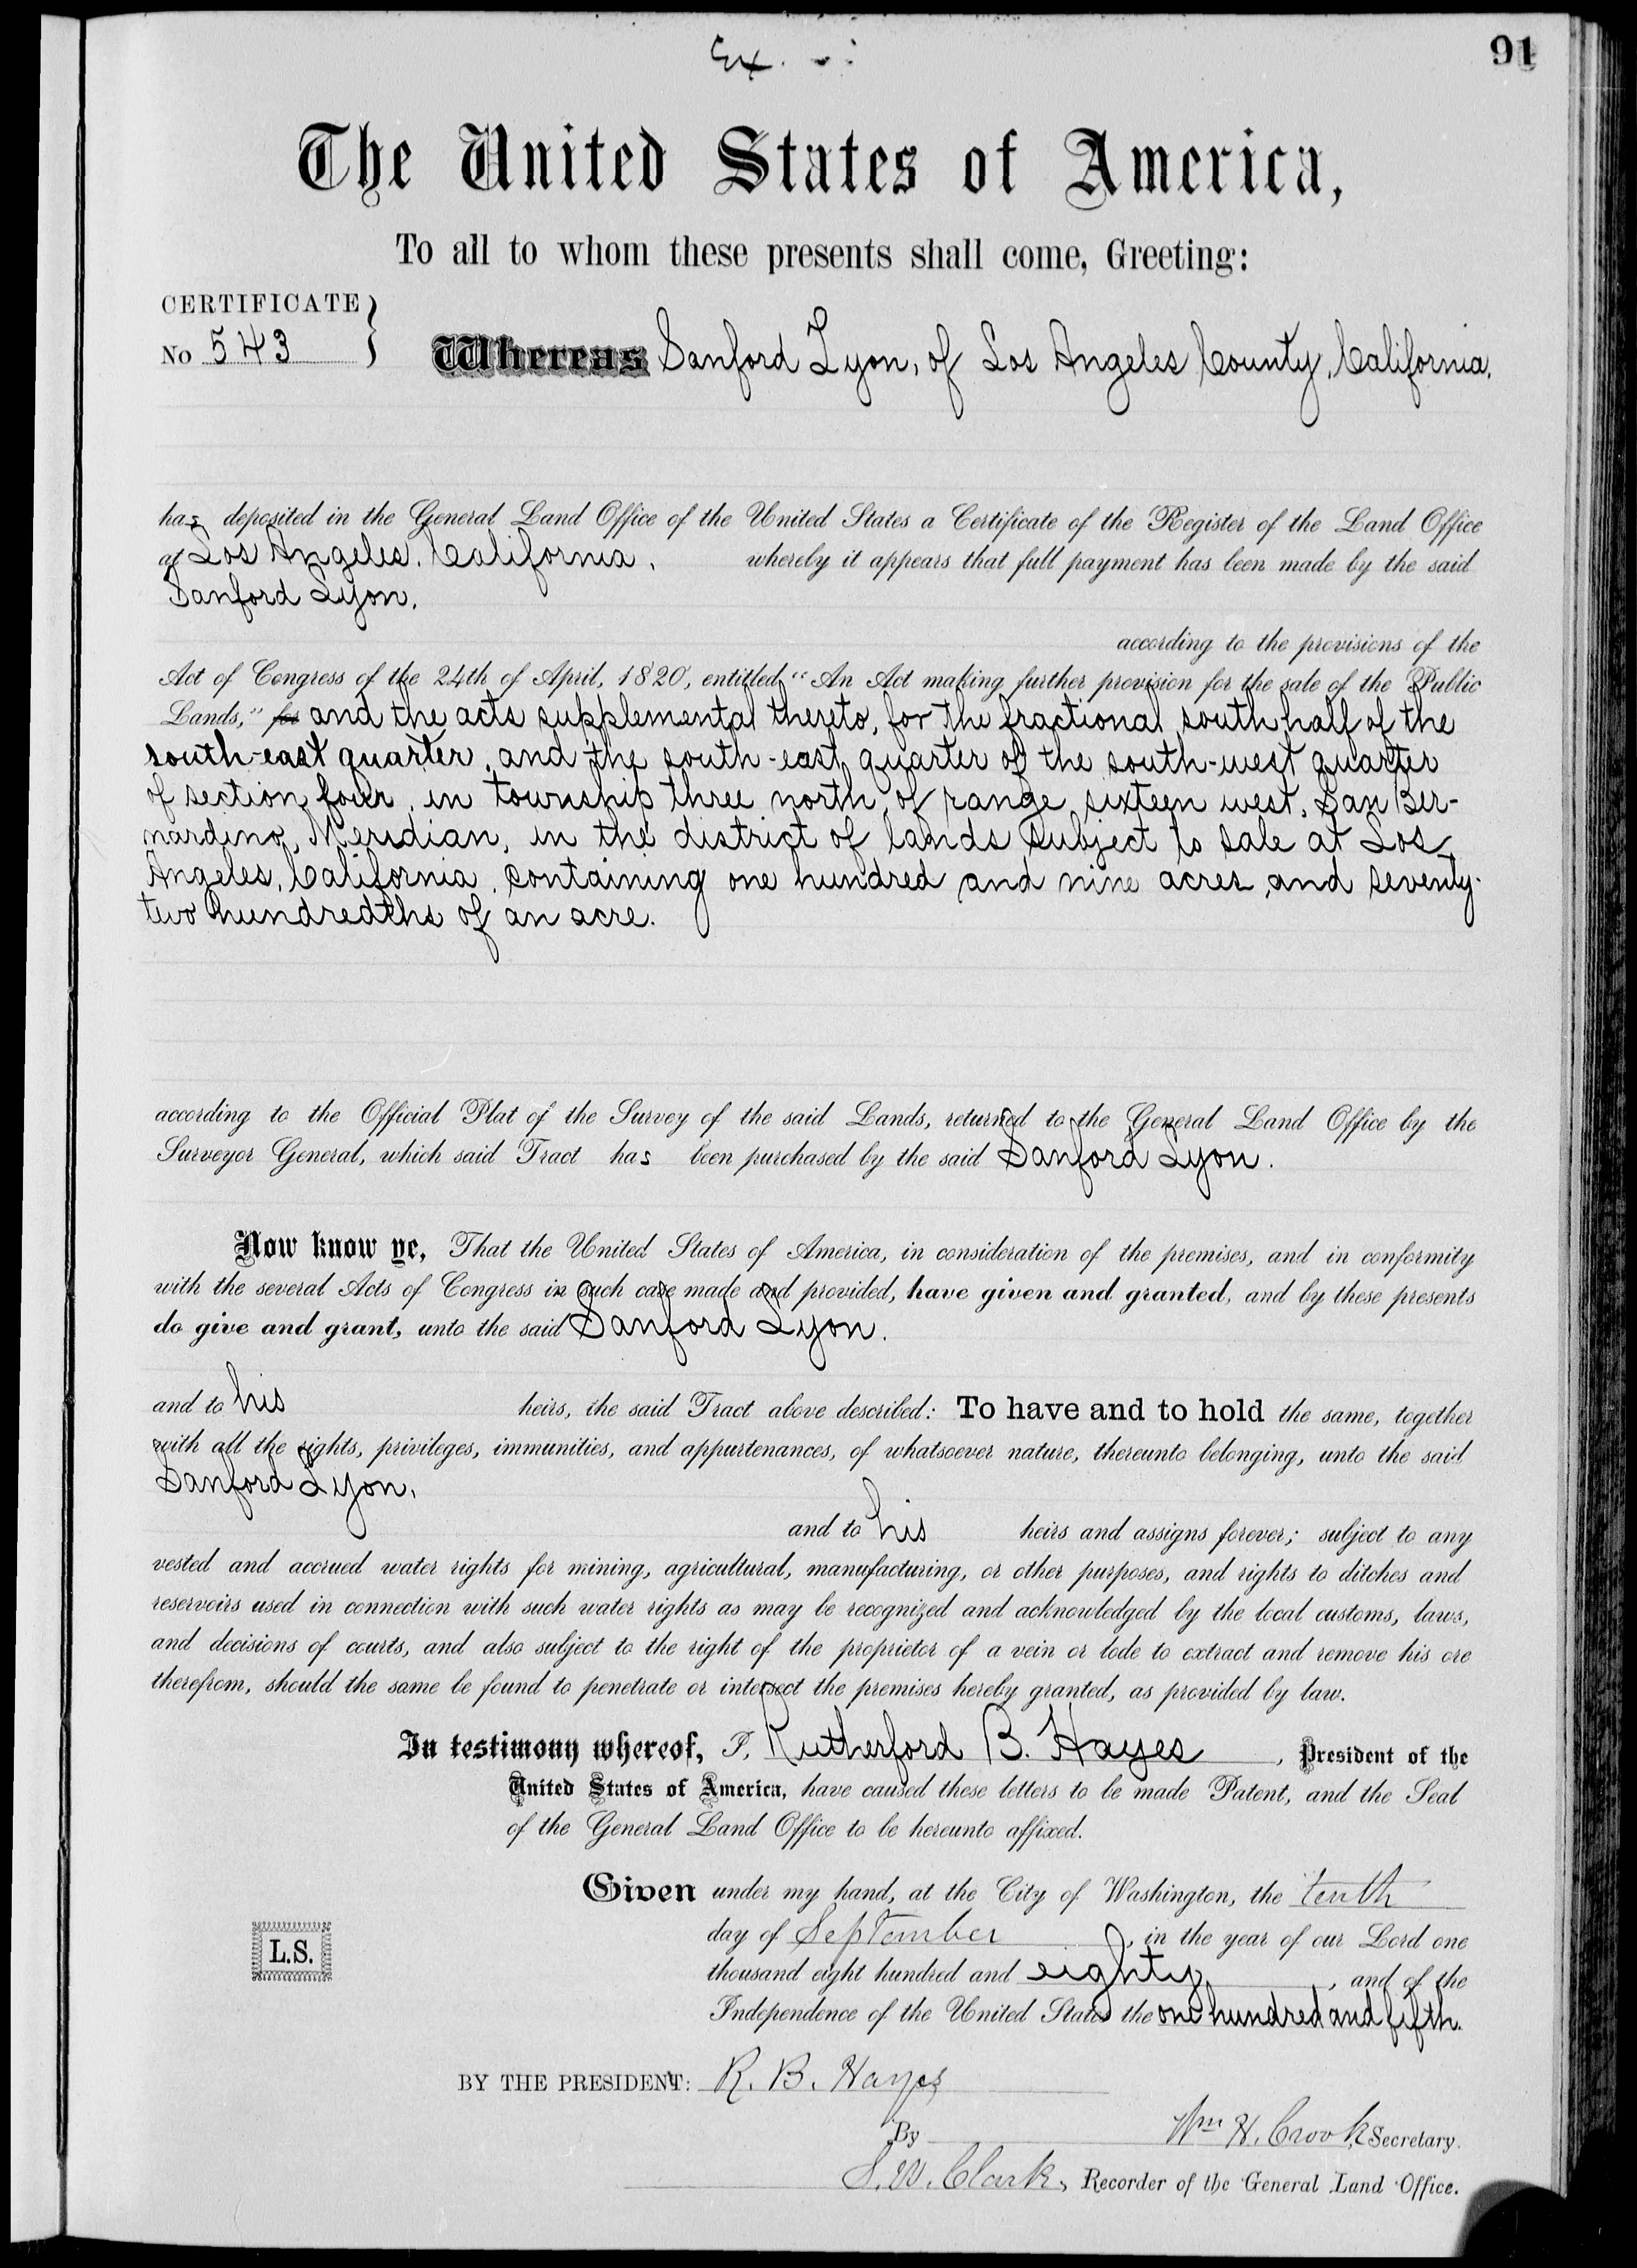 Ex.
91
The United States of America,
To all to whom these presents shall come, Greeting:
CERTIFICATE
No 543
Whereas Sanford Lyon, of Los Angeles County, California,
has deposited in the General Land Office of the United States a Certificate of the Register of the Land Office
at Los Angeles, California, whereby it appears that full payment has been made by the said
Sanford Lyon,
according to the provisions of the
Act of Congress of the 24th of April, 1820, entitled "An Act making further provision for the sale of the Public
Lands," for and the acts supplemental thereto, for the fractional south half of the
south-east quarter, and the south-east quarter of the south-west quarter
of section four, in township three north, of range sixteen west, San Ber-
nardino, Meridian, in the district of lands subject to sale at Los
Angeles, California, containing one hundred and nine acres, and seventy-
two hundredths of an acre.
according to the Official Plat of the Survey of the said Lands, returned to the General Land Office by the
Surveyor General, which said Tract has been purchased by the said Sanford Lyon.
Now know ye, That the United States of America, in consideration of the premises, and in conformity
with the several Acts of Congress in such case made and provided, have given and granted, and by these presents
do give and grant, unto the said Sanford Lyon.
and to his heirs, the said Tract above described: To have and to hold the same, together
with all the rights, privileges, immunities, and appurtenances, of whatsoever nature, thereunto belonging, unto the said
Sanford Lyon,
and to his heirs and assigns forever; subject to any
vested and accrued water rights for mining, agricultural, manufacturing, or other purposes, and rights to ditches and
reservoirs used in connection with such water rights as may be recognized and acknowledged by the local customs, laws,
and decisions of courts, and also subject to the right of the proprietor of a vein or lode to extract and remove his ore
therefrom, should the same be found to penetrate or intersect the premises hereby granted, as provided by law.
In testimony whereof, I, Rutherford B. Hayes, President of the
United States of America, have caused these letters to be made Patent, and the Seal
of the General Land Office to be hereunto affixed.
Given under my hand, at the City of Washington, the tenth
day of September, in the year of our Lord one
L.S.
thousand eight hundred and eighty, and of the
Independence of the United States the one hundred and fifth.
BY THE PRESIDENT: R. B. Hayes
By Wm H. Crook, Secretary.
S. W. Clark, Recorder of the General Land Office.